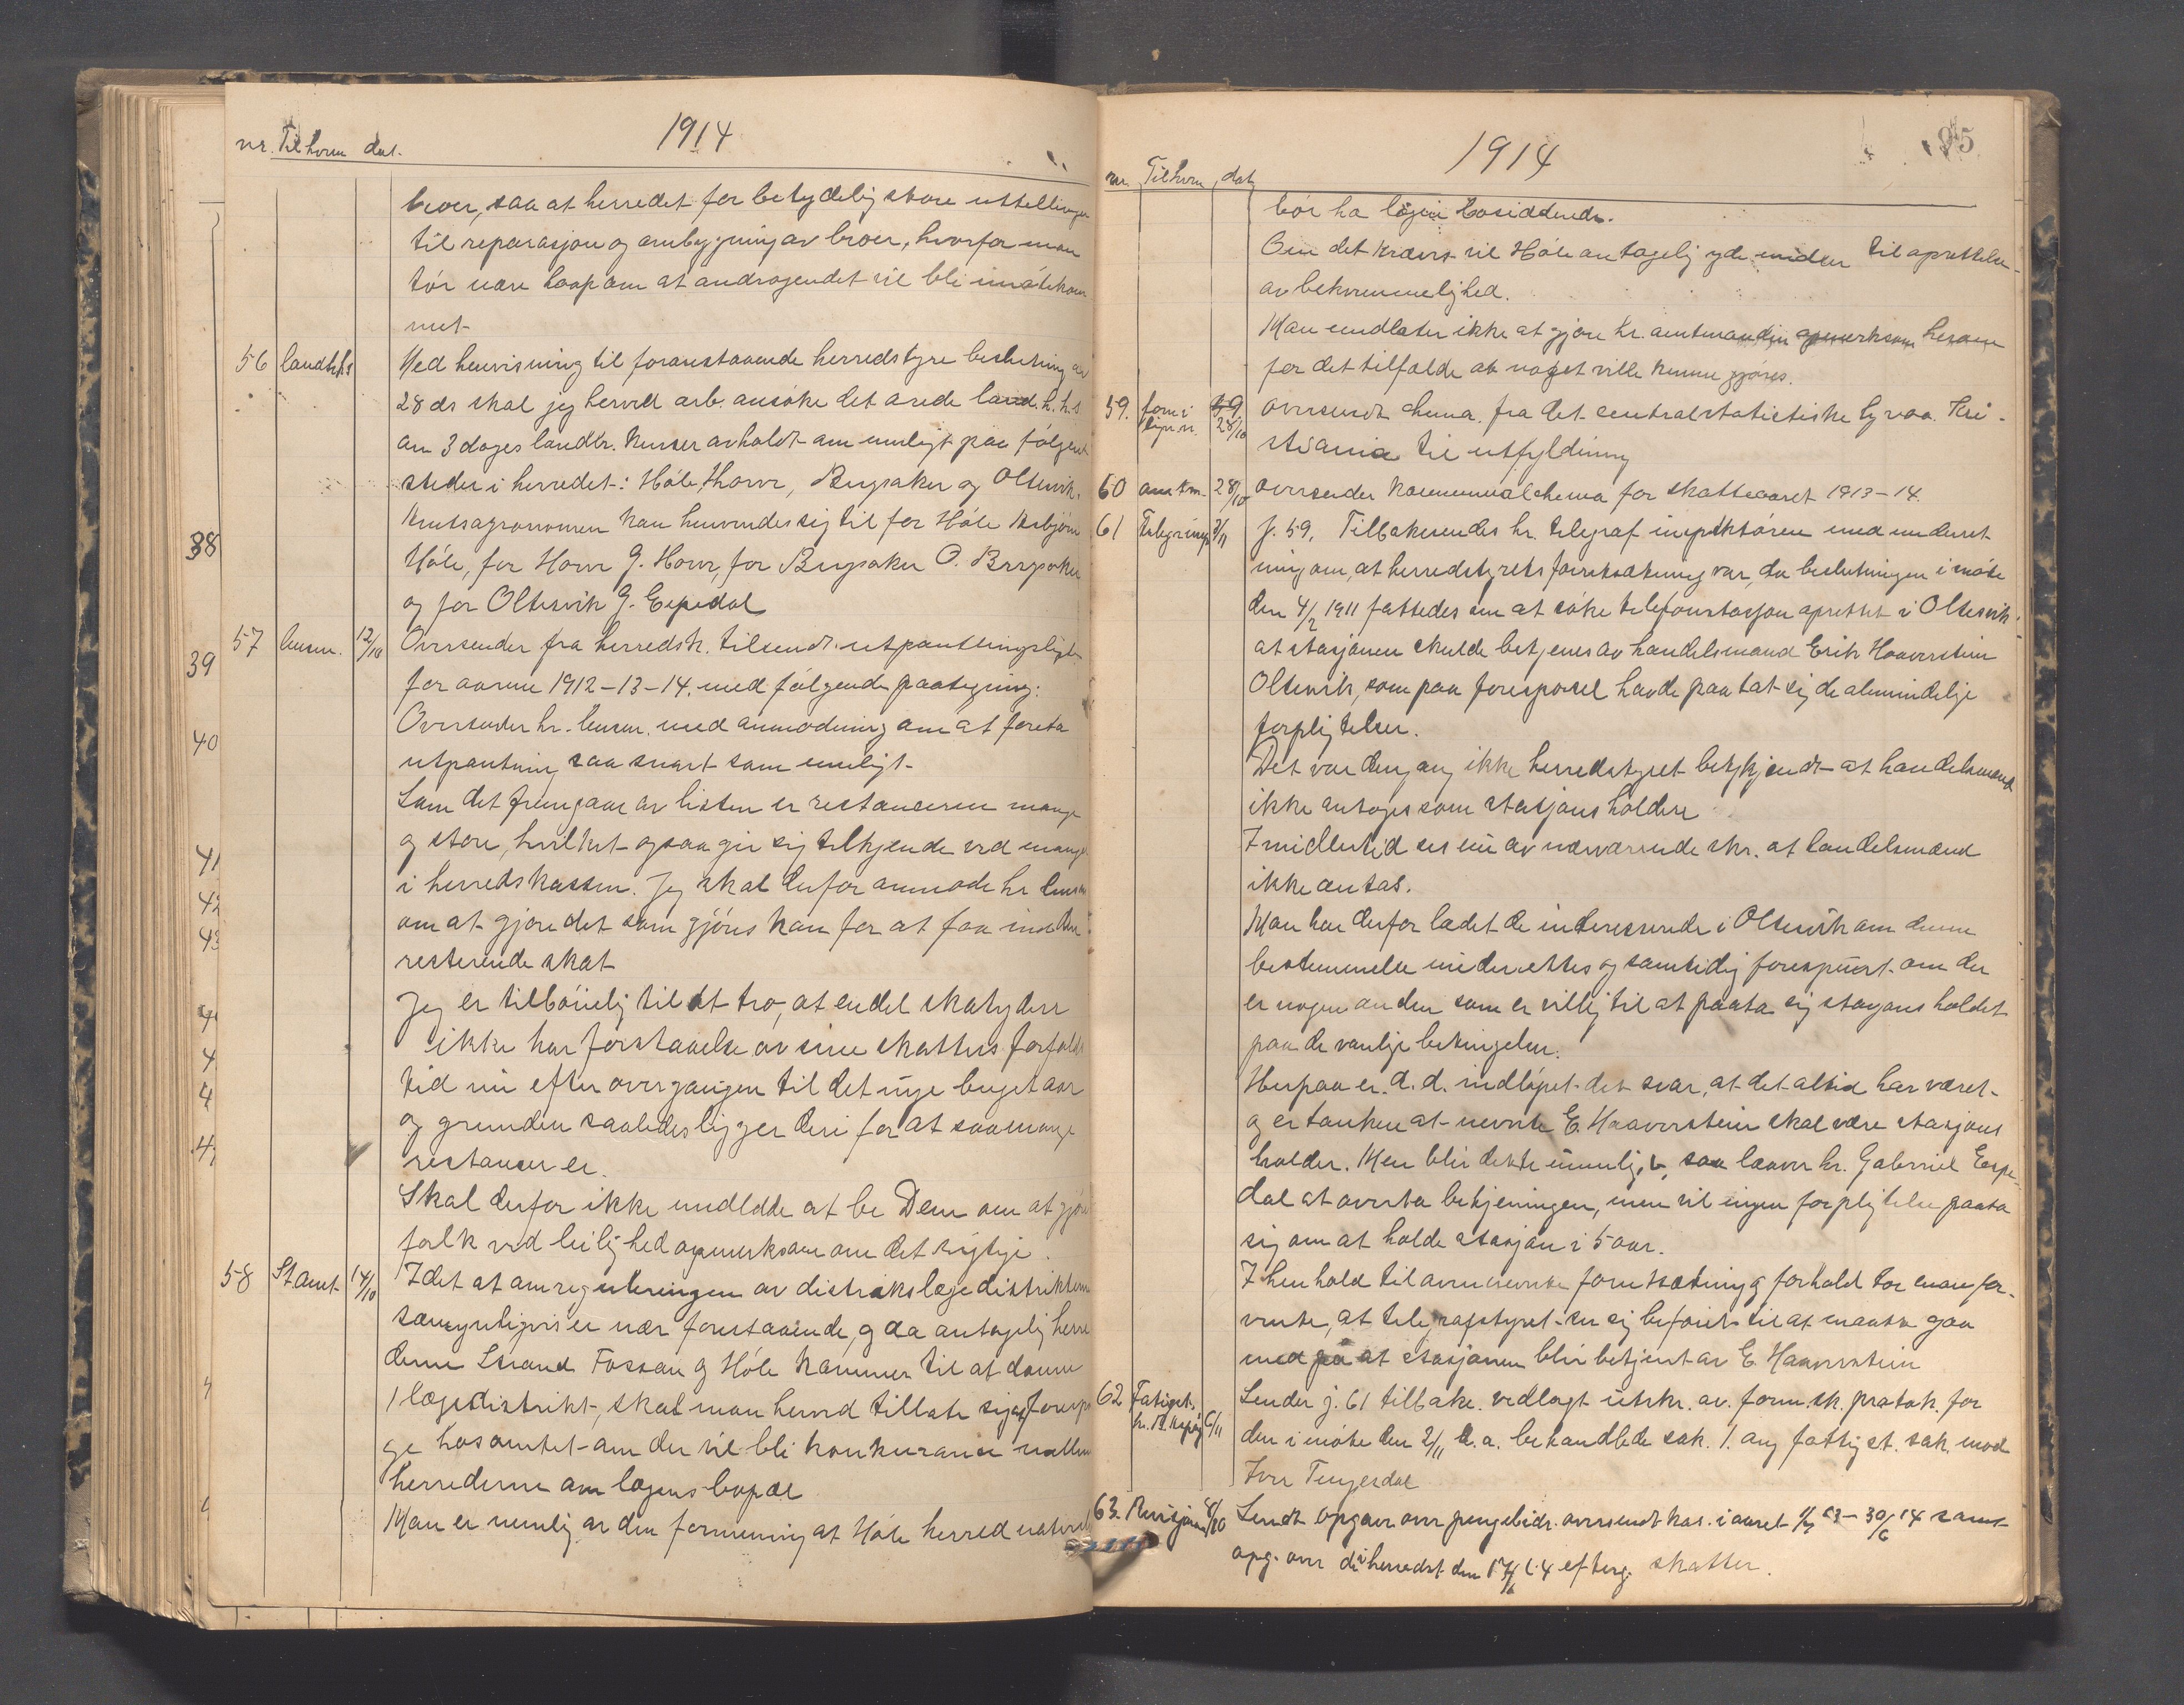 1914
nr. Til hvem dat.
broer, saa at herredet for betydelig store utstellinger
til reparasjon og ombygning av broer, hvorfor man
tör være haap om at andragendet vil bli imötekom
met
56 landhhs Med henvisning til foranstaaende herredstyre beslutning av
28 ds skal jeg herved arb. ansöke det ærede land.h.h.s
om 3 dages landbr. kurser avholdt om muligt paa fölgende
steder i herredet: Höle, Horve, Bersaker og Oltesvik.
38
Amtsagronomen kan henvendes sig til for Höle Asbjörn
Höle, for Horve G. Horve, for Bersaker O. Bersaker
og for Oltesvik G. Espedal
39
57 lensm. 12/10 Oversender fra herredsk. tilsendt utpantningsliste
for aarene 1912-13-14. med fölgende paategning:
40
Oversender hr. lensm. med anmodning om at foreta
utpantning saa snart som muligt.
Som det fremgaar av listen er restancerne mange
41
og store, hvilket ogsaa gir sig tilkjende ved mangel
42
i herredskassen. Jeg skal derfor anmode hr. lensm
43
om at gjöre det som gjöres kan for at faa ind den
resterende skat
Jeg er tilböielig til at tro, at endel skatydere
ikke har forstaaelse av sine skatters forfalds
tid nu efter overgangen til det nye buget aar
og grunden saaledes ligger deri for at saa mange
restanser er.
Skal derfor ikke undlate at be Dem om at gjöre
folk ved leilighed opmerksom om det rigtige.
58 St.amt. 14/10 Idet at omreguleringen av distrikslægedistrikterne
sansynligvis er nær forestaaende, og da antagelig herre
derne Strand Fossan og Höle kommer til at danne
1 lægedistrikt, skal man herved tillate sig at foresp
ge hos amtet om der vil bli konkuranse mellem
herrederne om lægens bopæl
Man er nemlig av den formening at Höle herred naturlig
1914
95
nr. Tilhvem dat.
bör ha lægen bosiddende.
Om det kræves vil Höle antagelig yde midler til oprettelse
av bekvemmelighed.
Man undlater ikke at gjöre hr. amtmanden opmerksom herom
for det tilfælde at noget ville kunne gjöres.
59. form i 29. oversendt skema fra det sentralstatistiske byraa Kri-
28/10 stiania til utfyldning
60 amtm. 28/10 oversender kommunalskema for skatteaaret 1913-14.
61 Telegr.insp. 3/11 J. 59. Tilbakesendes hr. telegraf inspektören med underret
ning om, at herredstyrets forutsætning var, da beslutningen i möte
den 4/2 1911 fattedes om at söke telefonstasjon oprettet i Oltesvik
at stasjonen skulde betjenes av handelsmand Erik Haaverstein
Oltesvik, som paa forespörsel havde paatat sig de almindelige
forpligtelser.
Det var dengang ikke herredstyret bekjendt at handelsmænd
ikke antoges som stasjonsholdere
Imidlertid ses nu av nærværende skr. at handelsmænd
ikke antas.
Man har derfor ladet de interesserede i Oltesvik om denne
bestemmelse underrettes og samtidig forespurt om der
er nogen anden som er villig til at paata sig stasjons holdet
paa de vanlige betingelser.
Herpaa er d.d. indlöpet det svar, at det altid har været
og er tanken at nevnte E. Haaverstein skal være stasjons
holder. Men blir dette umulig, saa laaver hr. Gabriel Espe-
dal at overta betjeningen, men vil ingen forpligtelse paata
sig om at holde stasjon i 5 aar.
I henhold til ovennevnte forutsætning og forhold tör man for-
vente, at telegrafstyret ser sig beföiet til at maatte gaa
med paa at stasjonen blir betjent av E. Haaverstein
62 Fatigst. 6/11 Sender j. 61 tilbake vedlagt utskr. av form.sk. protok. for
den i möte den 2/11 d.a. behandlede sak. 1. ang fattigst. sak mod
Iver Tengesdal
63. Revisjonen 8/10 Sendt opgave over pengebidr. oversendt kas. i aaret 1/7 13-30/6 14 samt
opg. over de i herredst den 17/6 14 efterg. skatter.